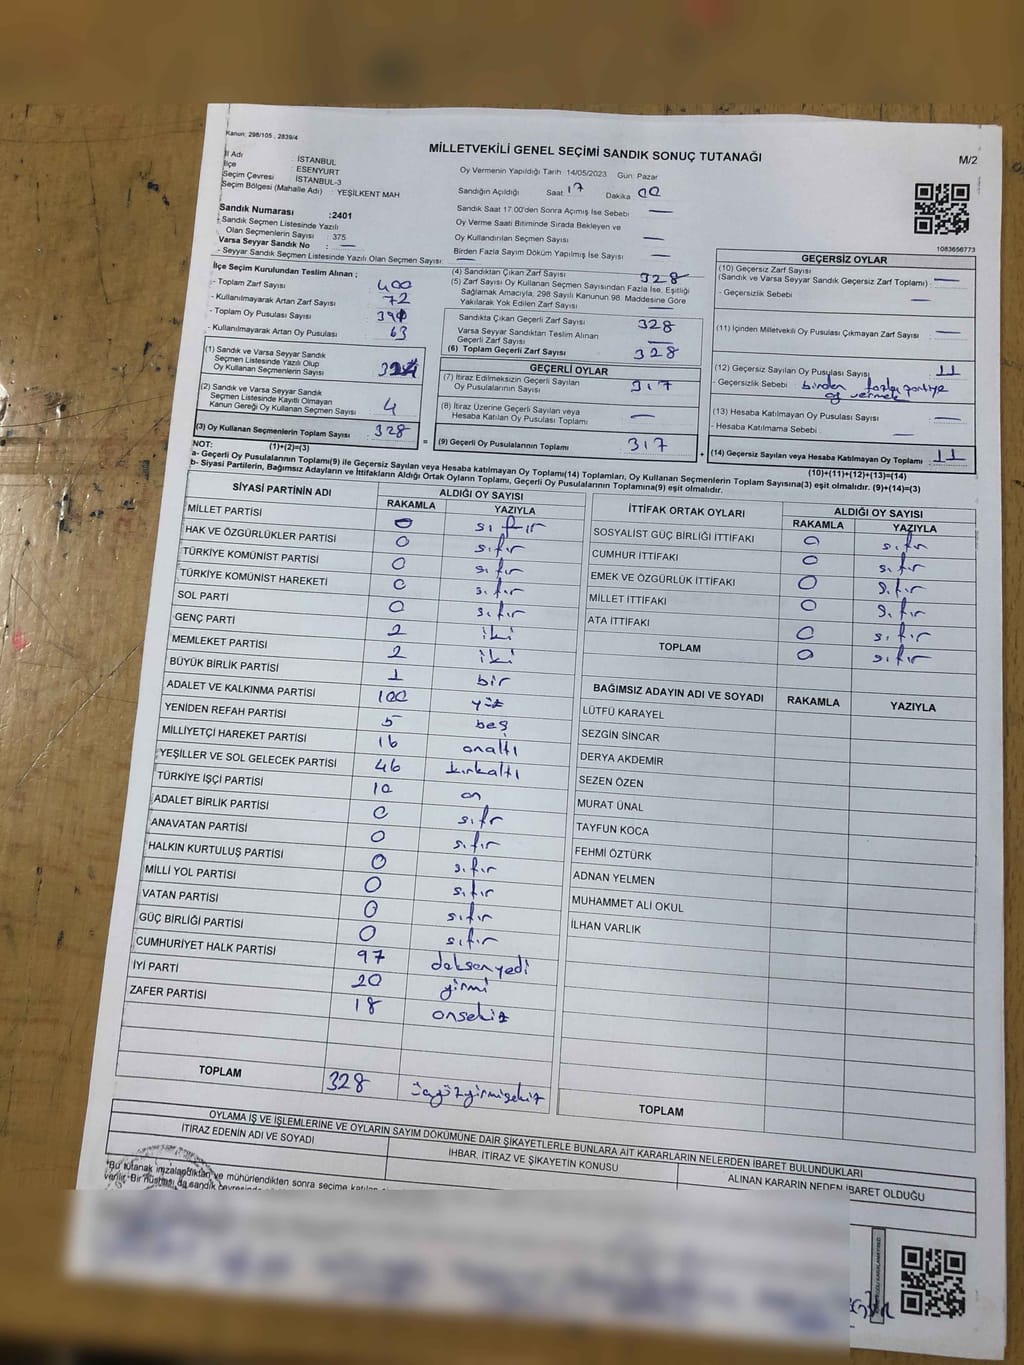 Kanun: 298/105 , 2839/4
MİLLETVEKİLİ GENEL SEÇİMİ SANDIK SONUÇ TUTANAĞI
M/2
İl Adı : İSTANBUL
İlçe : ESENYURT
Seçim Çevresi : İSTANBUL-3
Seçim Bölgesi (Mahalle Adı) : YEŞİLKENT MAH
Sandık Numarası : 2401
- Sandık Seçmen Listesinde Yazılı
Olan Seçmenlerin Sayısı : 375
Varsa Seyyar Sandık No : —
- Seyyar Sandık Seçmen Listesinde Yazılı Olan Seçmen Sayısı: —
Oy Vermenin Yapıldığı Tarih 14/05/2023 Gün: Pazar
Sandığın Açıldığı Saat 17 Dakika 00
Sandık Saat 17:00'den Sonra Açımış İse Sebebi —
Oy Verme Saati Bitiminde Sırada Bekleyen ve
Oy Kullandırılan Seçmen Sayısı —
Birden Fazla Sayım Döküm Yapılmış İse Sayısı —
1083656773
İlçe Seçim Kurulundan Teslim Alınan ;
- Toplam Zarf Sayısı 400
- Kullanılmayarak Artan Zarf Sayısı 72
- Toplam Oy Pusulası
- Kullanılmayarak Artan Oy Pusulası 63
(1) Sandık ve Varsa Seyyar Sandık
Seçmen Listesinde Yazılı Olup
Oy Kullanan Seçmenlerin Sayısı
(2) Sandık ve Varsa Seyyar Sandık
Seçmen Listesinde Kayıtlı Olmayan
Kanun Gereği Oy Kullanan Seçmen Sayısı 4
(3) Oy Kullanan Seçmenlerin Toplam Sayısı 328
(1)+(2)=(3)
(4) Sandıktan Çıkan Zarf Sayısı 328
(5) Zarf Sayısı Oy Kullanan Seçmen Sayısından Fazla İse, Eşitliği
Sağlamak Amacıyla, 298 Sayılı Kanunun 98. Maddesine Göre
Yakılarak Yok Edilen Zarf Sayısı —
Sandıkta Çıkan Geçerli Zarf Sayısı 328
Varsa Seyyar Sandıktan Teslim Alınan
Geçerli Zarf Sayısı —
(6) Toplam Geçerli Zarf Sayısı 328
GEÇERLİ OYLAR
(7) İtiraz Edilmeksizin Geçerli Sayılan
Oy Pusulalarının Sayısı 317
(8) İtiraz Üzerine Geçerli Sayılan veya
Hesaba Katılan Oy Pusulası Toplamı —
= (9) Geçerli Oy Pusulalarının Toplamı 317 +
GEÇERSİZ OYLAR
(10) Geçersiz Zarf Sayısı
(Sandık ve Varsa Seyyar Sandık Geçersiz Zarf Toplamı) : —
- Geçersizlik Sebebi : —
(11) İçinden Milletvekili Oy Pusulası Çıkmayan Zarf Sayısı : —
(12) Geçersiz Sayılan Oy Pusulası Sayısı : 11
- Geçersizlik Sebebi : birden fazla partiye
oy vermek
(13) Hesaba Katılmayan Oy Pusulası Sayısı : —
- Hesaba Katılmama Sebebi : —
(14) Geçersiz Sayılan veya Hesaba Katılmayan Oy Toplamı 11
(10)+(11)+(12)+(13)=(14)
NOT:
a- Geçerli Oy Pusulalarının Toplamı(9) ile Geçersiz Sayılan veya Hesaba katılmayan Oy Toplamı(14) Toplamları, Oy Kullanan Seçmenlerin Toplam Sayısına(3) eşit olmalıdır. (9)+(14)=(3)
b- Siyasi Partilerin, Bağımsız Adayların ve İttifakların Aldığı Ortak Oyların Toplamı, Geçerli Oy Pusulalarının Toplamına(9) eşit olmalıdır.
SİYASİ PARTİNİN ADI ALDIĞI OY SAYISI
RAKAMLA YAZIYLA
MİLLET PARTİSİ 0 sıfır
HAK VE ÖZGÜRLÜKLER PARTİSİ 0 sıfır
TÜRKİYE KOMÜNİST PARTİSİ 0 sıfır
TÜRKİYE KOMÜNİST HAREKETİ 0 sıfır
SOL PARTİ 0 sıfır
GENÇ PARTİ 2 iki
MEMLEKET PARTİSİ 2 iki
BÜYÜK BİRLİK PARTİSİ 1 bir
ADALET VE KALKINMA PARTİSİ 100 yüz
YENİDEN REFAH PARTİSİ 5 beş
MİLLİYETÇİ HAREKET PARTİSİ 16 onaltı
YEŞİLLER VE SOL GELECEK PARTİSİ 46 kırkaltı
TÜRKİYE İŞÇİ PARTİSİ 10 on
ADALET BİRLİK PARTİSİ 0 sıfır
ANAVATAN PARTİSİ 0 sıfır
HALKIN KURTULUŞ PARTİSİ 0 sıfır
MİLLİ YOL PARTİSİ 0 sıfır
VATAN PARTİSİ 0 sıfır
GÜÇ BİRLİĞİ PARTİSİ 0 sıfır
CUMHURİYET HALK PARTİSİ 97 doksanyedi
İYİ PARTİ 20 yirmi
ZAFER PARTİSİ 18 onsekiz
TOPLAM 328 üçyüzyirmisekiz
İTTİFAK ORTAK OYLARI ALDIĞI OY SAYISI
RAKAMLA YAZIYLA
SOSYALİST GÜÇ BİRLİĞİ İTTİFAKI 0 sıfır
CUMHUR İTTİFAKI 0 sıfır
EMEK VE ÖZGÜRLÜK İTTİFAKI 0 sıfır
MİLLET İTTİFAKI 0 sıfır
ATA İTTİFAKI 0 sıfır
TOPLAM 0 sıfır
BAĞIMSIZ ADAYIN ADI VE SOYADI RAKAMLA YAZIYLA
LÜTFÜ KARAYEL
SEZGİN SİNCAR
DERYA AKDEMİR
SEZEN ÖZEN
MURAT ÜNAL
TAYFUN KOCA
FEHMİ ÖZTÜRK
ADNAN YELMEN
MUHAMMET ALİ OKUL
İLHAN VARLIK
TOPLAM
OYLAMA İŞ VE İŞLEMLERİNE VE OYLARIN SAYIM DÖKÜMÜNE DAİR ŞİKAYETLERLE BUNLARA AİT KARARLARIN NELERDEN İBARET BULUNDUKLARI
İTİRAZ EDENİN ADI VE SOYADI İHBAR, İTİRAZ VE ŞİKAYETİN KONUSU ALINAN KARARIN NEDEN İBARET OLDUĞU
*Bu tutanak imzalandıktan ve mühürlendikten sonra seçime katılan
verilir. Bir nüshası da sandık çevresinde